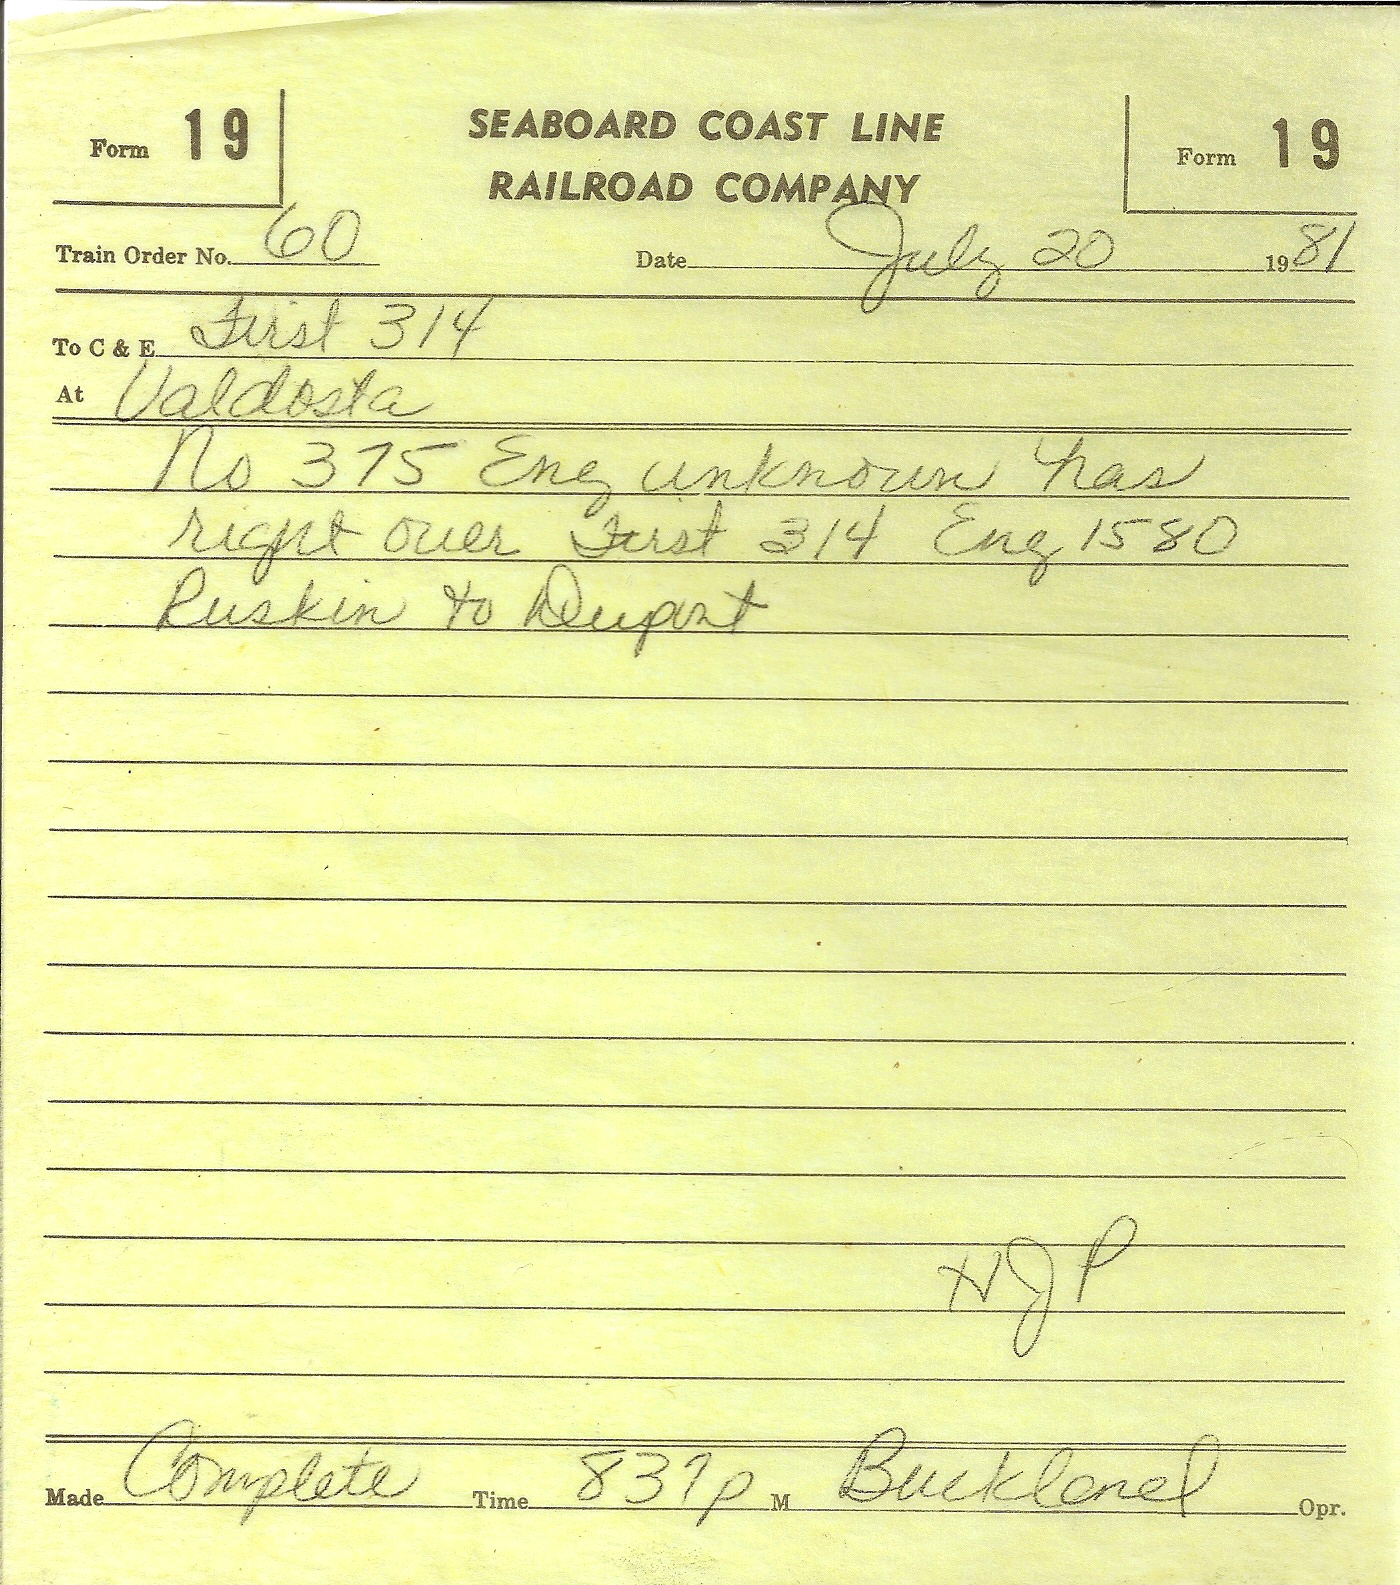 Form 19
SEABOARD COAST LINE
RAILROAD COMPANY
Form 19
Train Order No. 60 Date July 20 1981
To C & E First 314
At Valdosta
No 375 Eng unknown has
right over First 314 Eng 1580
Ruskin to Dupont
HJP
Made Complete Time 837p M Buckland Opr.